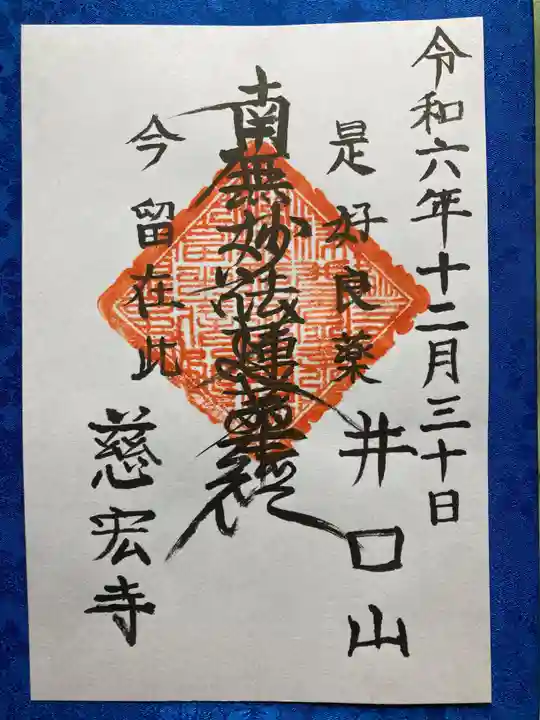 令和六年十二月三十日
是好良薬
井口山
南無妙法蓮華経
今留在此
慈宏寺